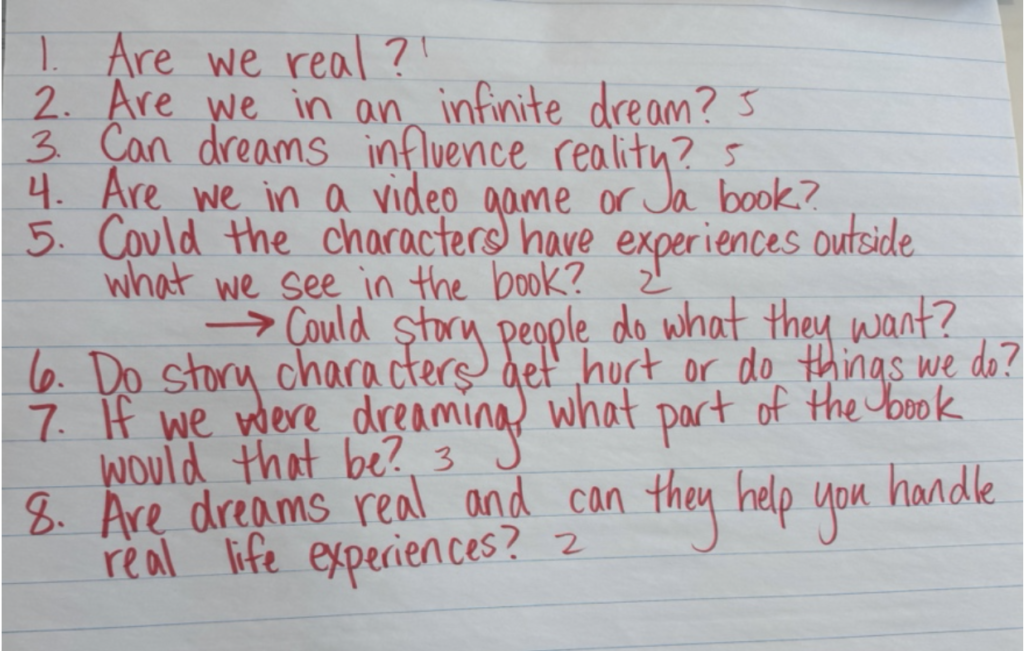 1. Are we real? 1
2. Are we in an infinite dream? 5
3. Can dreams influence reality? 5
4. Are we in a video game or a book?
5. Could the characters have experiences outside
what we see in the book? 2
→ Could story people do what they want?
6. Do story characters get hurt or do things we do?
7. If we were dreaming, what part of the book
would that be? 3
8. Are dreams real and can they help you handle
real life experiences? 2